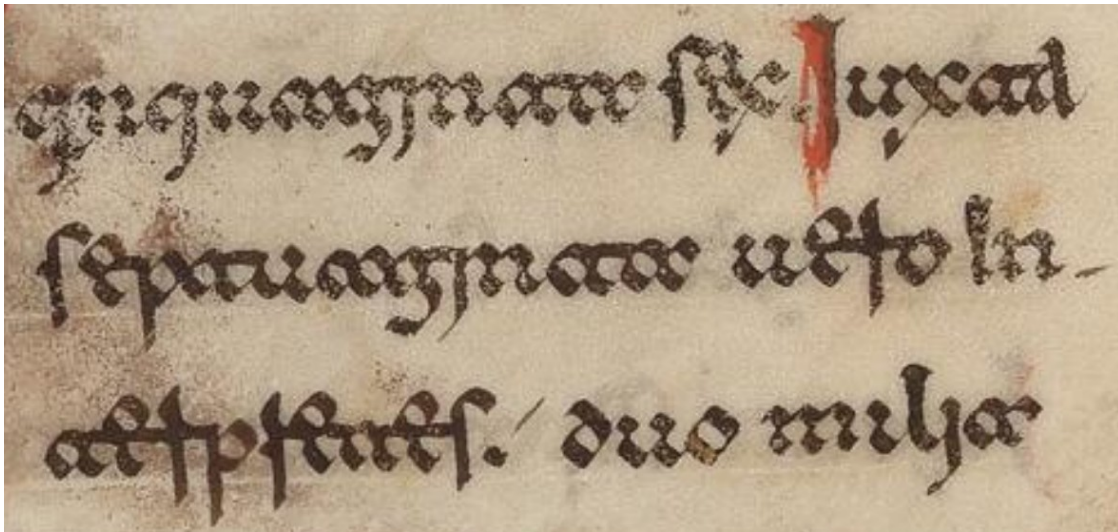 qinquaginta sex. Iuxta
septuaginta uero In-
terpretes. duo milia